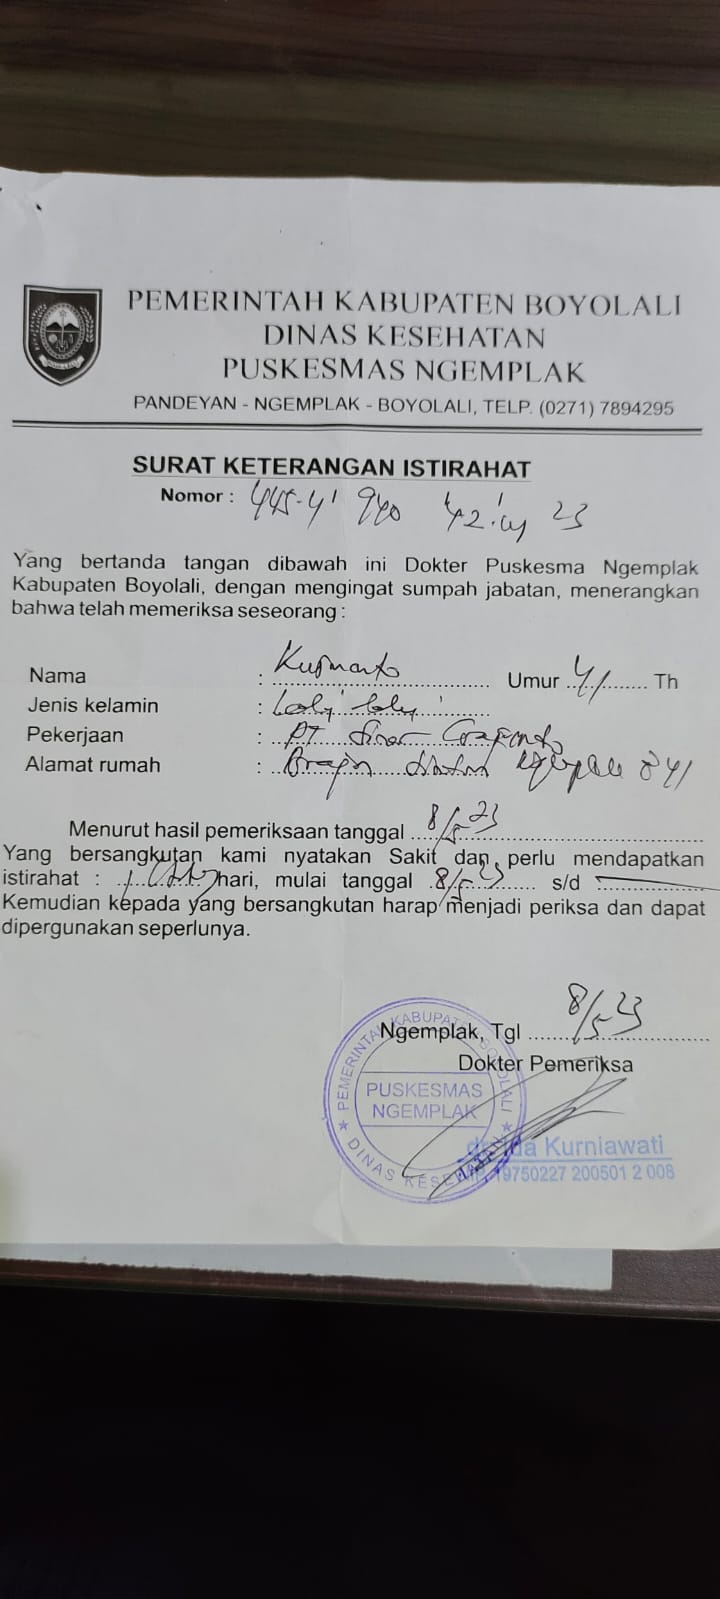 PEMERINTAH KABUPATEN BOYOLALI
DINAS KESEHATAN
PUSKESMAS NGEMPLAK
PANDEYAN - NGEMPLAK - BOYOLALI, TELP. (0271) 7894295
SURAT KETERANGAN ISTIRAHAT
Nomor : 23
Yang bertanda tangan dibawah ini Dokter Puskesma Ngemplak
Kabupaten Boyolali, dengan mengingat sumpah jabatan, menerangkan
bahwa telah memeriksa seseorang :
Nama : Umur 41 Th
Jenis kelamin :
Pekerjaan : PT
Alamat rumah :
Menurut hasil pemeriksaan tanggal 8/5-23
Yang bersangkutan kami nyatakan Sakit dan perlu mendapatkan
istirahat : 1 hari, mulai tanggal 8/5-23 s/d
Kemudian kepada yang bersangkutan harap menjadi periksa dan dapat
dipergunakan seperlunya.
Ngemplak, Tgl 8/5-23
Dokter Pemeriksa
PEMERINTAH KABUPATEN BOYOLALI
PUSKESMAS
NGEMPLAK
DINAS KESEHATAN
Kurniawati
19750227 200501 2 008